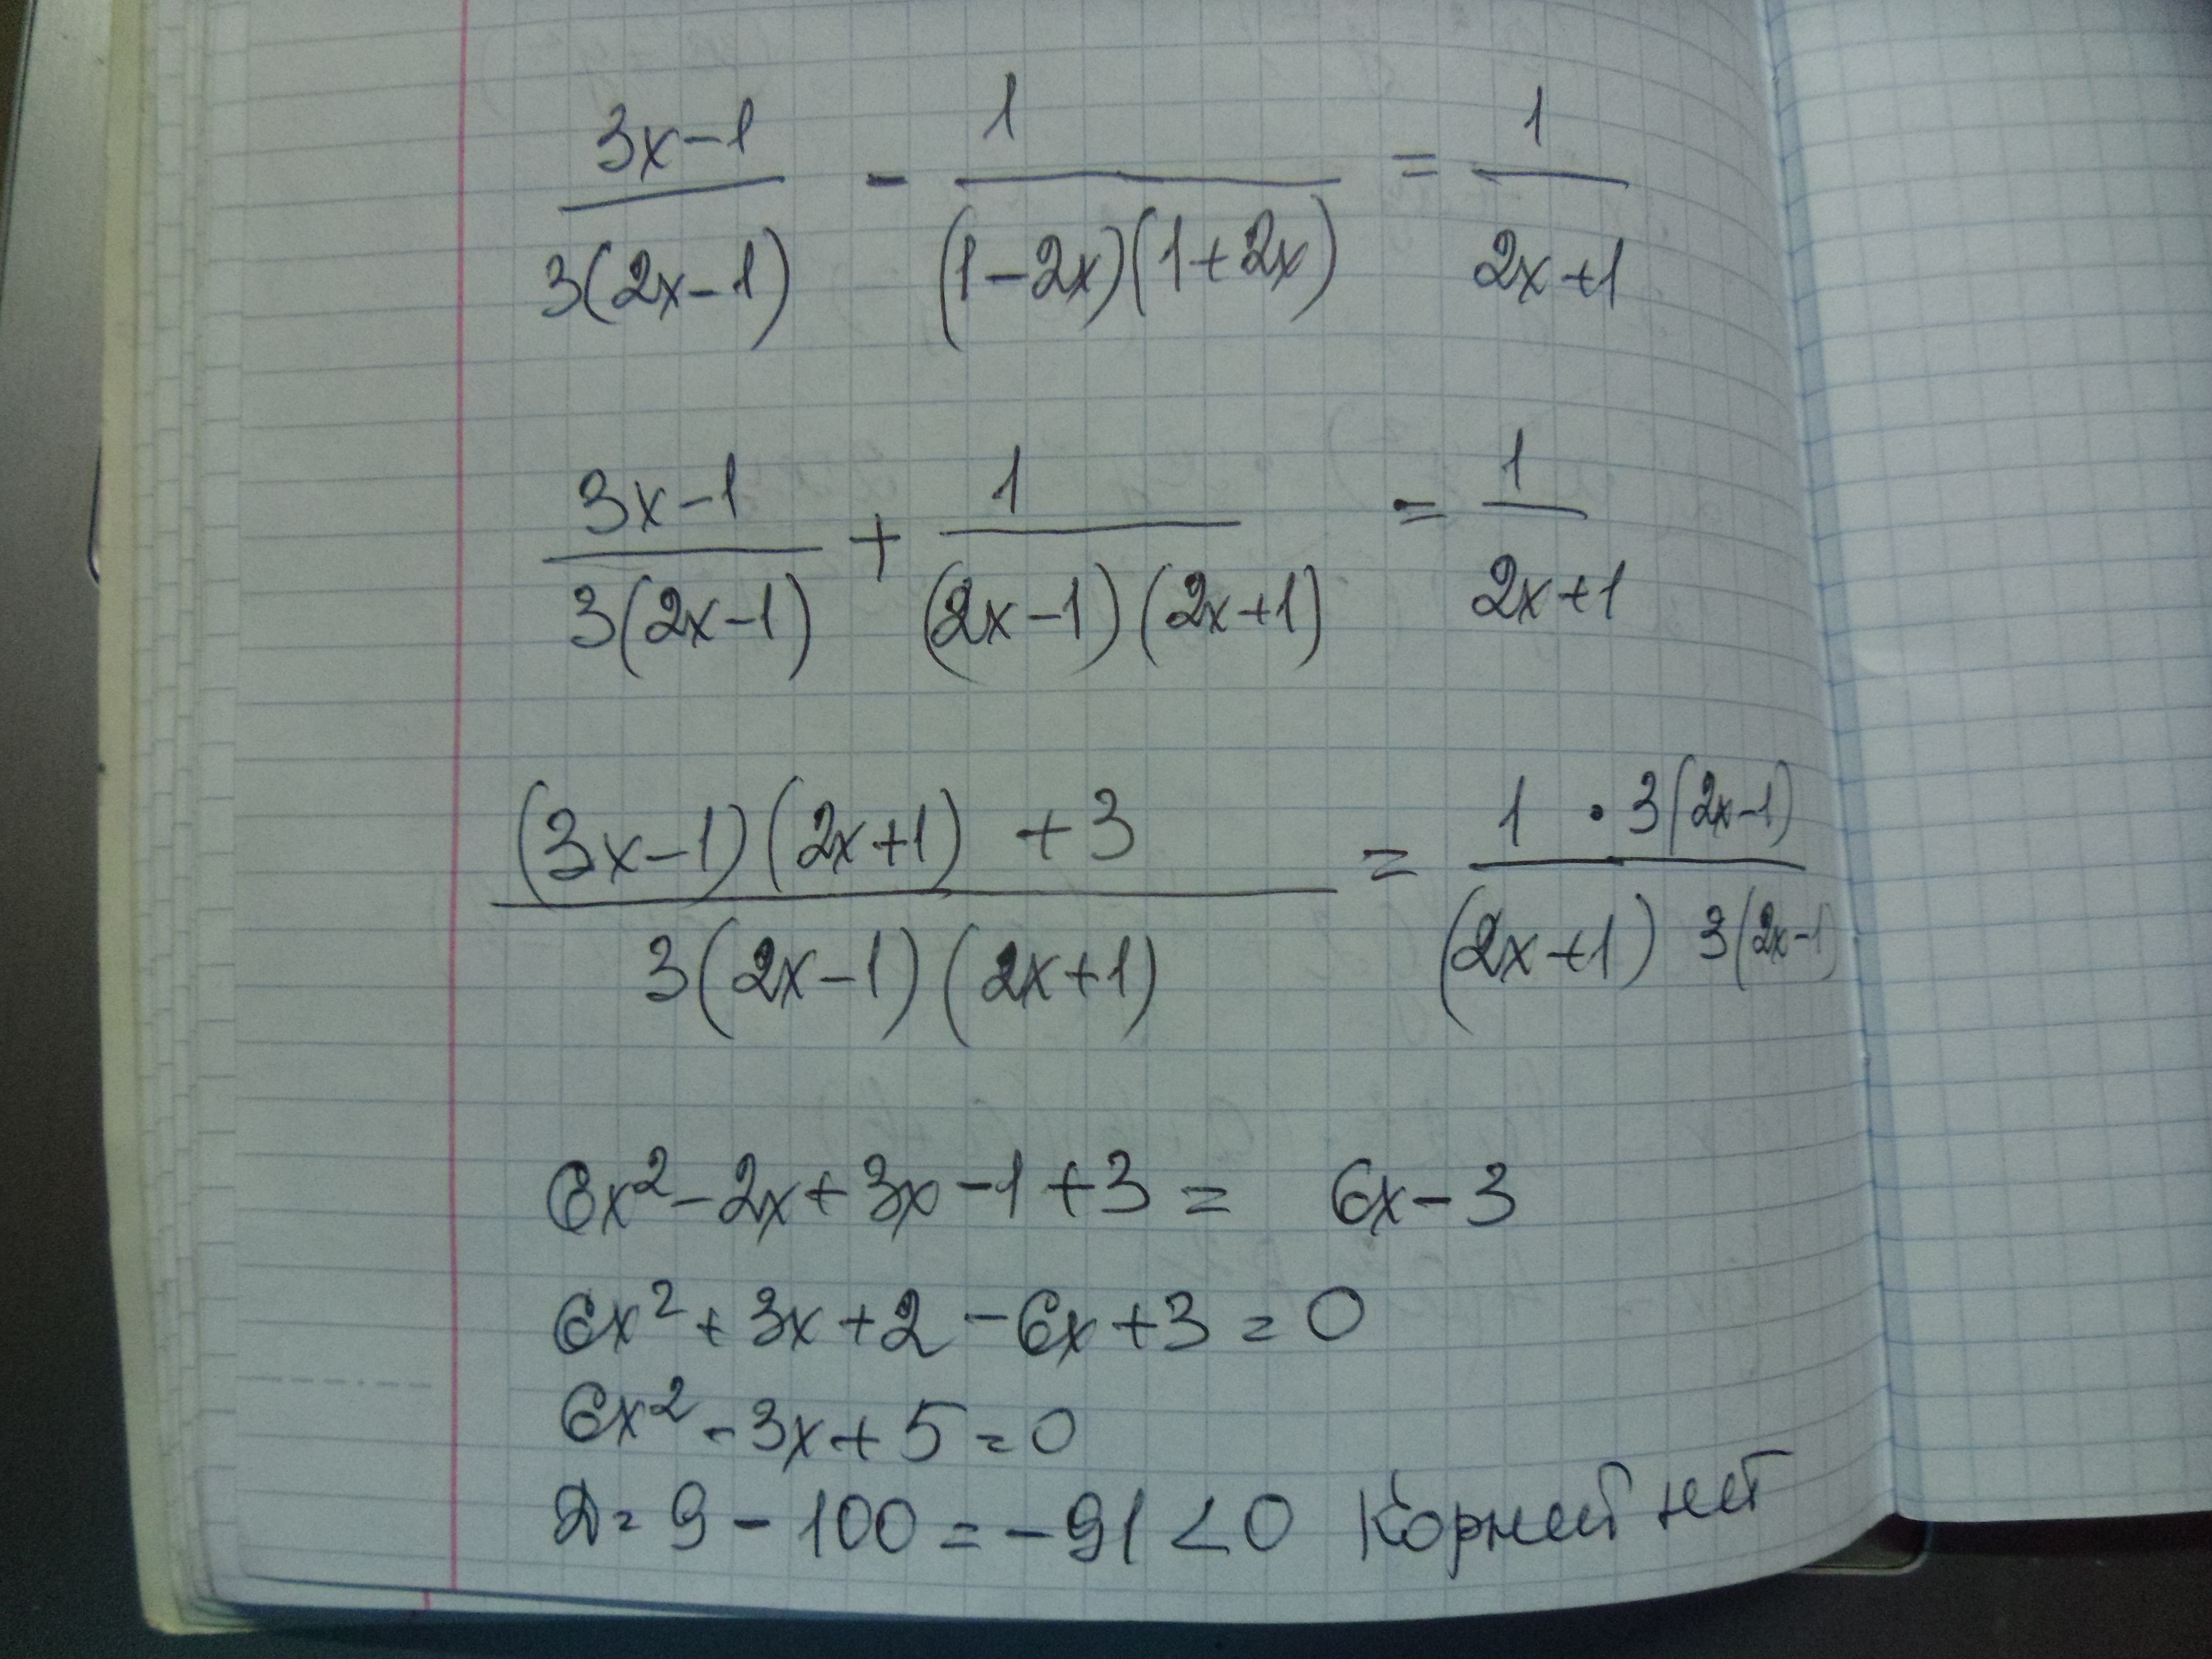 (3x-1)/(3(2x-1)) - 1/((1-2x)(1+2x)) = 1/(2x+1)
(3x-1)/(3(2x-1)) + 1/((2x-1)(2x+1)) = 1/(2x+1)
((3x-1)(2x+1) + 3)/(3(2x-1)(2x+1)) = (1 · 3(2x-1))/((2x+1) 3(2x-1))
6x² - 2x + 3x - 1 + 3 = 6x - 3
6x² + 3x + 2 - 6x + 3 = 0
6x² - 3x + 5 = 0
D = 9 - 100 = -91 < 0 Корней нет